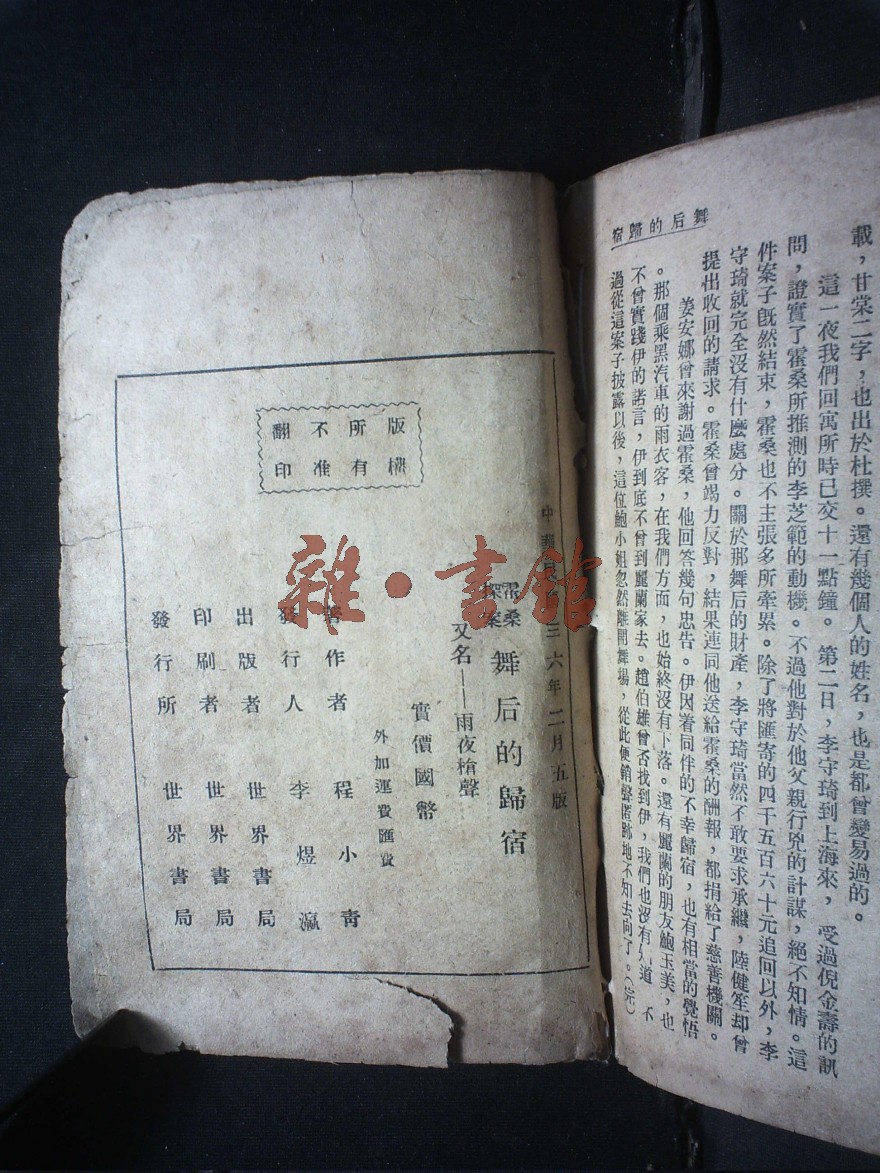 載，甘棠二字，也出於杜撰。還有幾個人的姓名，也是都曾變易過的。
這一夜我們回寓所時已交十一點鐘。第二日，李守琦到上海來，受過倪金壽的訊
問，證實了霍桑所推測的李芝範的動機。不過他對於他父親行兇的計謀，絕不知情。這
件案子旣然結束，霍桑也不主張多所牽累。除了將匯寄的四千五百六十元追回以外，李
守琦就完全沒有什麼處分。關於那舞后的財產，李守琦當然不敢要求承繼，陸健笙却曾
提出收回的請求。霍桑曾竭力反對，結果連同他送給霍桑的酬報，都捐給了慈善機關。
姜安娜曾來謝過霍桑，他回答幾句忠告。伊因着同伴的不幸歸宿，也有相當的覺悟
。那個乘黑汽車的雨衣客，在我們方面，也始終沒有下落。還有麗蘭的朋友鮑玉美，也
不曾實踐伊的諾言，伊到底不曾到麗蘭家去。趙伯雄曾否找到伊，我們也沒有人道 不
過從這案子披露以後，這位鮑小姐忽然離開舞場，從此便銷聲匿跡地不知去向了。（完）
舞后的歸宿
中華 三六年二月五版
霍桑探案 舞后的歸宿
又名——雨夜槍聲
實價國幣
外加運費匯費
著作者 程小青
發行人 李煜瀛
出版者 世界書局
印刷者 世界書局
發行所 世界書局
版權所有
不准翻印
雜·書館